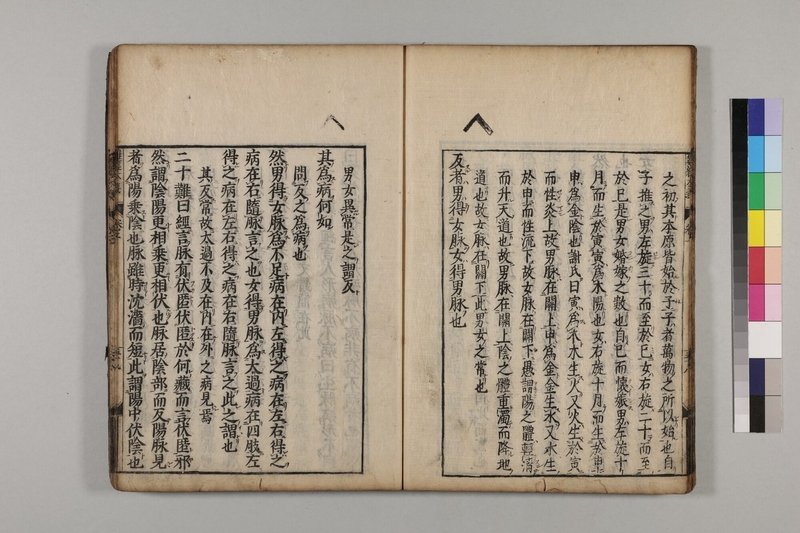 之初其本原皆始於子子者萬物之所以始也自
子推之男左旋三十而至於巳女右旋二十而至
於巳是男女婚嫁之數也自巳而懷娠男左旋十
月而生於寅寅爲木陽也女右旋十月而生於申
申爲金陰也謝氏曰寅爲木木生火又火生於寅
而性炎上故男脉在關上申爲金金生水又水生
於申而性流下故女脉在關下愚謂陽之體輕清
而升天道也故男脉在關上陰之體重濁而降地
道也故女脉在關下此男女之常也
反者男得女脉女得男脉也
男女異常是之謂反
其爲病何如
問反之爲病也
然男得女脉爲不足病在内左得之病在左右得之
病在右隨脉言之也女得男脉爲太過病在四肢左
得之病在左右得之病在右隨脉言之此之謂也
其反常故太過不及在内在外之病見焉
二十難曰經言脉有伏匿伏匿於何藏而言伏匿邪
然謂陰陽更相乘更相伏也脉居陰部而反陽脉見
者爲陽乘陰也脉雖時沈濇而短此謂陽中伏陰也